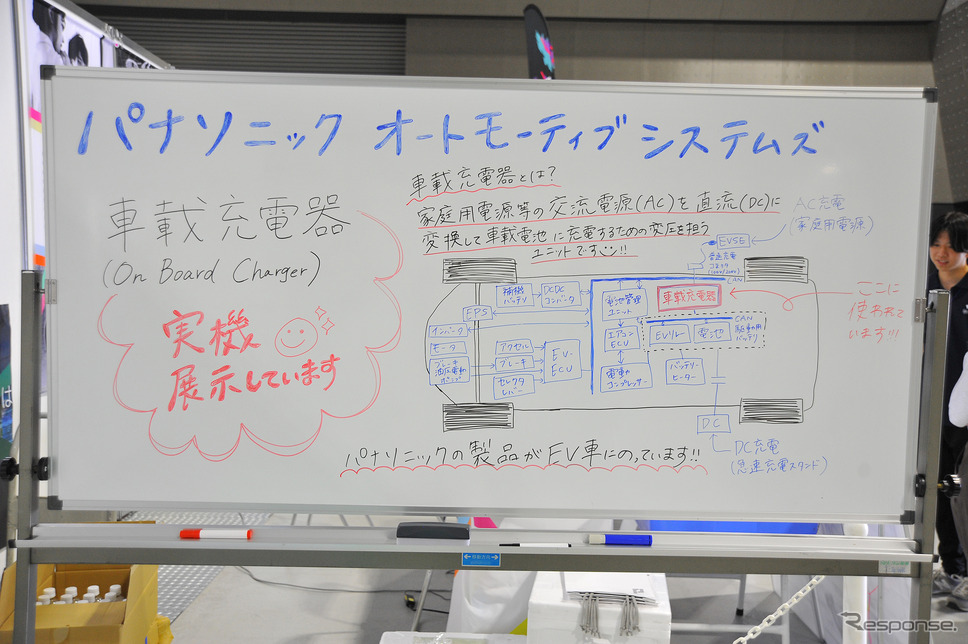 パナソニック オートモーティブシステムズ
車載充電器
(On Board Charger)
実機
展示しています
車載充電器とは?
家庭用電源等の交流電源(AC)を直流(DC)に
変換して車載電池に充電するための変圧を担う
ユニットです!!
AC充電
(家庭用電源)
EVSE
普通充電
コネクタ
(100V/200V)
CAN
補機
バッテリ
DCDC
コンバータ
電池管理
ユニット
車載充電器
ここに
使われて
います!!!
EPS
インバータ
モータ
ブレーキ
油圧電動
ポンプ
アクセル
ブレーキ
セレクタ
レバー
EV-
ECU
エアコン
ECU
電動
コンプレッサー
EVリレー
電池
CAN
駆動用
バッテリ
バッテリー
ヒーター
DC
DC充電
(急速充電スタンド)
パナソニックの製品がEV車にのっています!!
Response.